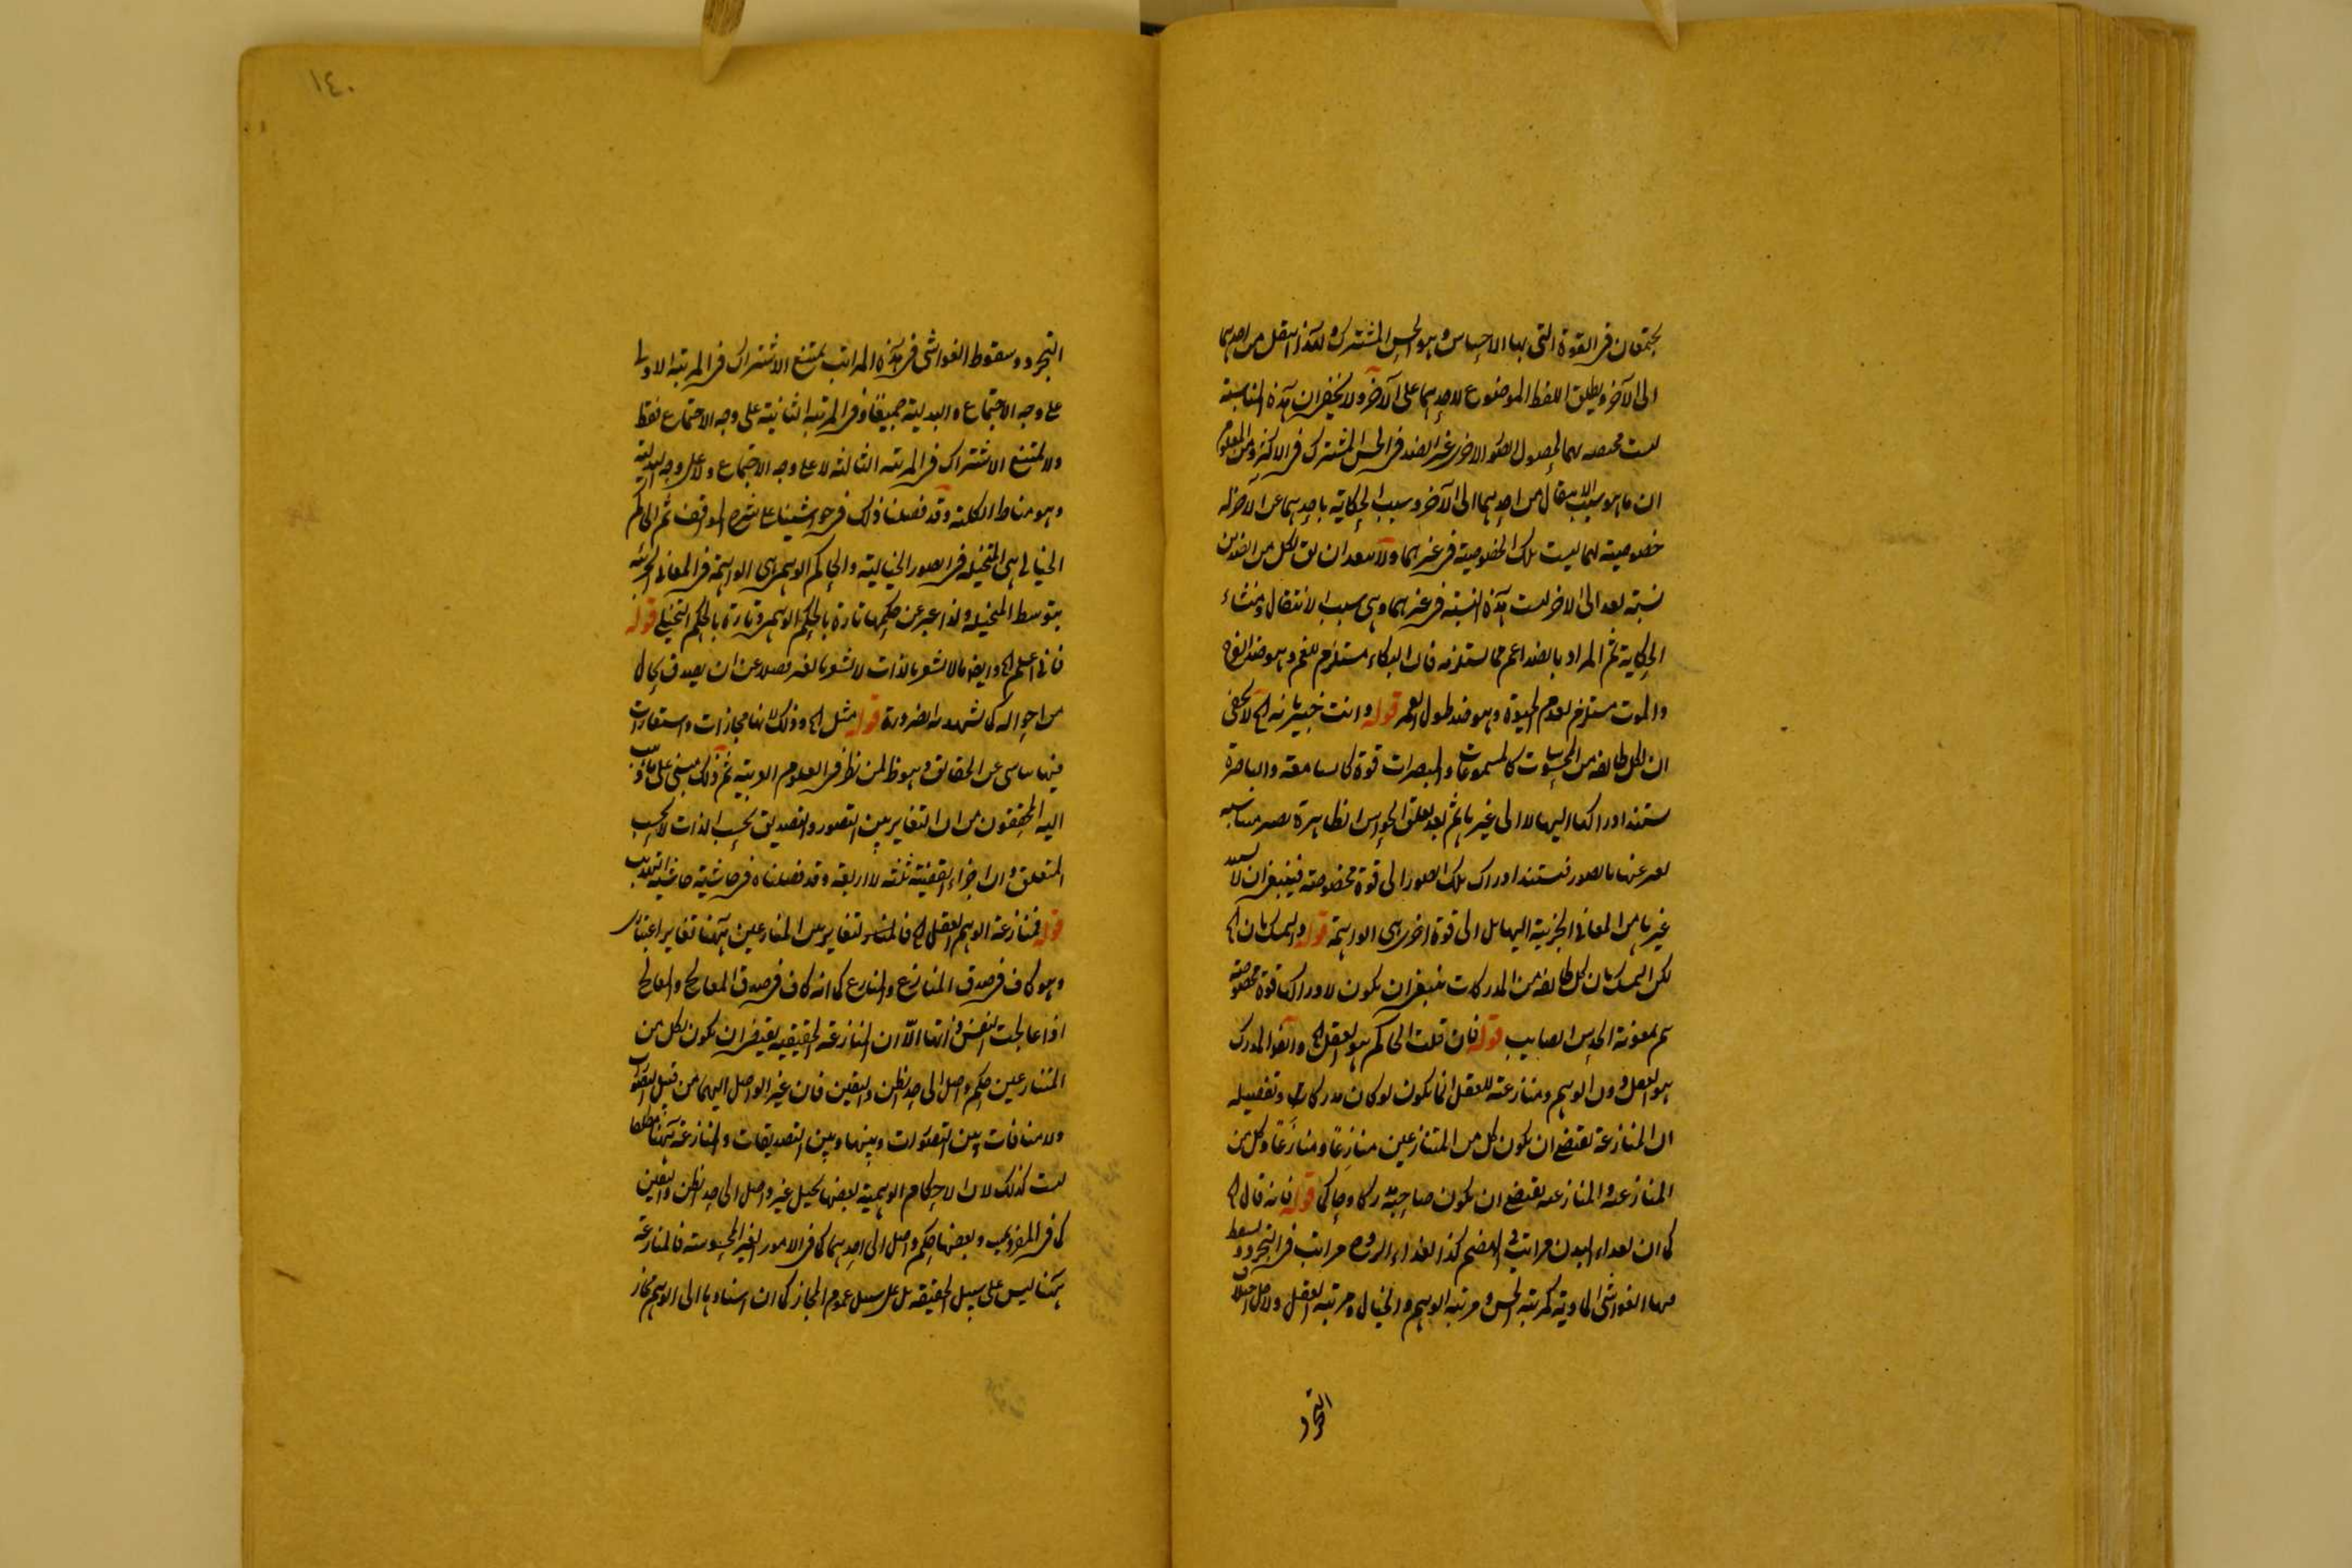 يجتمعان في القوة التي بها الاحساس وهو الحس المشترك ولهذا ينتقل من احدهما
الى الآخر ويطلق اللفظ الموضوع لاحدهما على الآخر ولا يخفى ان هذه المناسبة
ليست مختصة بهما لحصول الصور الاخرى غير الضد في الحس المشترك في الاكثر ومن المعلوم
ان ما هو سبب الانتقال من احدهما الى الآخر وسبب الحكاية باحدهما عن الآخر له
خصوصية بهما ليست تلك الخصوصية في غيرهما ولا يبعد ان يق لكل من الضدين
نسبة بعد الى الاخر ليست هذه النسبة في غيرهما وهي سبب الانتقال ومنشاء
الحكاية ثم المراد بالضد اعم مما يستلزمه فان البكاء مستلزم للغم وهو ضد الفرح
والموت مستلزم لعدم الحيوة وهو ضد طول العمر قوله وانت خبير بانه الخ لا يخفى
ان لكل طائفة من المحسوسات كالمسموعات والمبصرات قوة كالسامعة والباصرة
يستند ادراكها اليها لا الى غيرها ثم بعد تعلق الحواس الظاهرة بصير مناسبة
يعبر عنها بالصور فيستند ادراك تلك الصور الى قوة مخصوصة فينبغي ان لا يسند
غيرها من المعاني الجزئية اليها بل الى قوة اخرى هي الواهمة قوله والتمسك بان الخ
لكن التمسك بان كل طائفة من المدركات ينبغي ان يكون لادراكها قوة مخصوصة
ثم بمعونة الحدس الصايب قوله فان قلت الحاكم هو العقل الخ وايضا المدرك
هو العقل دون الوهم ومنازعته للعقل انما يكون لو كان مدركا وتفصيله
ان المنازعة تقتضي ان يكون كل من المتنازعين منازِعًا ومنازَعًا وكل من
المنازعة والمنازعة يقتضي ان يكون صاحبه مدركا وحاكما قوله فانه قال الخ
كما ان لغداء البدن مراتب في الهضم كذا لغداء الروح مراتب في التجرد وسقط
منها الغواشي المادية كمرتبة الحس ومرتبة الوهم والخيال ومرتبة العقل ولاجل اختلاف
التجرد
١٤٠
التجرد وسقوط الغواشي في هذه المراتب يمتنع الاشتراك في المرتبة الاولى
على وجه الاجتماع والبدلية جميعًا وفي المرتبة الثانية على وجه الاجتماع فقط
ولا يمتنع الاشتراك في المرتبة الثالثة لا على وجه الاجتماع ولا على وجه البدلية
وهو مناط الكلية وقد فصلنا ذلك في حواشينا على شرح المواقف ثم الحاكم
الخيالي هي المتخيلة في الصور الخيالية والحاكم الوهم هي الواهمة في المعاني الجزئية
بتوسط المتخيلة ولذا عبر عن حكمها تارة بالحكم الوهمي وتارة بالحكم التخيلي قوله
فاني اعلم الخ وايضا ما لا يشعر بالذات لا يشعر بالغير فضلا عن ان يصدق بحال
من احواله كما تشهد به الضرورة قوله مثل الخ وذلك لانها مجازات واستعارات
فيها تناسي عن الحقائق وهو ظ لمن نظر في العلوم العربية ثم ذلك مبني على ما ذهب
اليه المحققون من ان التغاير بين التصور والتصديق بحسب الذات لا بحسب
المتعلق وان اجزاء القضية ثلثة لا اربعة وقد فصلناه في حاشية حاشية التهذيب
قوله فمنازعة الوهم العقل الخ فالمنشأ لتغاير بين المنازعين ههنا تغاير اعتباري
وهو كاف في صدق المنازع والمنازع كما انه كاف في صدق المعالج والمعالج
اذا عالجت النفس ذاتها الّا ان المنازعة الحقيقية يقتضي ان يكون لكل من
المتنازعين حكم واصل الى حد الظن واليقين فان غير الواصل اليهما من قبيل التصورات
ولا منافات بين التصورات وبينها وبين التصديقات والمنازعة ههنا مطلقا
ليست كذلك لان الاحكام الوهمية بعضها تخيل غير واصل الى حد الظن واليقين
كما في المفروض وبعضها حكم واصل الى احدهما كما في الامور الغير المحسوسة فالمنازعة
ههنا ليس على سبيل الحقيقة بل على سبيل عموم المجاز كما ان اسنادها الى الوهم مجاز